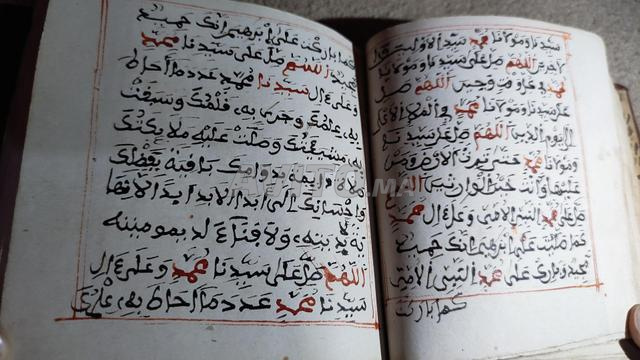 سيدنا ومولانا محمد سيد الاولين والا
خرين اللهم صل على سيدنا ومولانا
محمد في كل وقت وحين اللهم صل
على سيدنا ومولانا محمد في الملإ الاعلى
الى يوم الدين اللهم صل على سيدنا
ومولانا محمد حتى ترث الارض ومن
عليها وانت خير الوارثين اللهم
صل على محمد النبي الامي وعلى ال محمد
كما صليت على ابرهيم انك حميد
مجيد وبارك على محمد النبي الامي
كما باركت
كما باركت على ابرهيم انك حميد
مجيد اللهم صل على سيدنا محمد
وعلى ال سيدنا محمد عدد ما احاط
به علمك وجرى به قلمك وسبقت
به مشيئتك وصلت عليه ملائكتك
صلاة دائمة بدوامك باقية بفضلك
واحسانك الى ابد الابد ابدا لا نها
ية لابديته ولا فناء لديموميته
اللهم صل على سيدنا محمد وعلى ال
سيدنا محمد عدد ما احاط به علمك